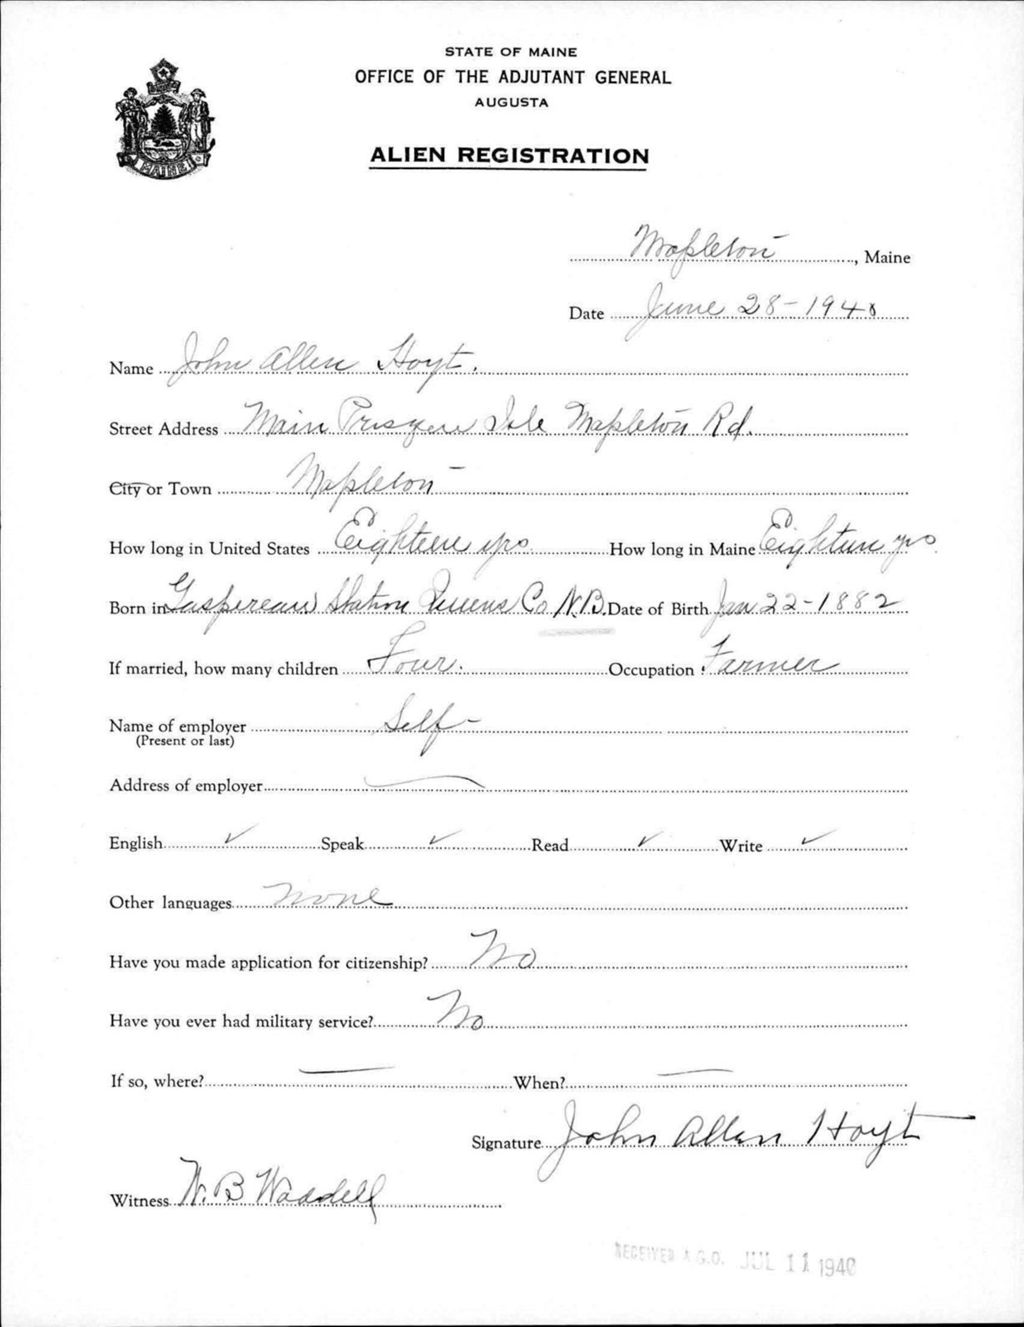 STATE OF MAINE
OFFICE OF THE ADJUTANT GENERAL
AUGUSTA
MAINE
ALIEN REGISTRATION
Mapleton, Maine
Date June 28-1940
Name John Allen Hoyt.
Street Address Main Presque Isle Mapleton Rd.
City or Town Mapleton
How long in United States Eighteen yrs How long in Maine Eighteen yrs
Born in Gaspereau Station Queens Co N.B. Date of Birth Jan 22-1882
If married, how many children Four. Occupation Farmer
Name of employer Self-
(Present or last)
Address of employer
English ✓ Speak ✓ Read ✓ Write ✓
Other languages None
Have you made application for citizenship? No
Have you ever had military service? No
If so, where? — When? —
Signature John Allen Hoyt
Witness W. B Waddell
RECEIVED A.G.O. JUL 11 1940